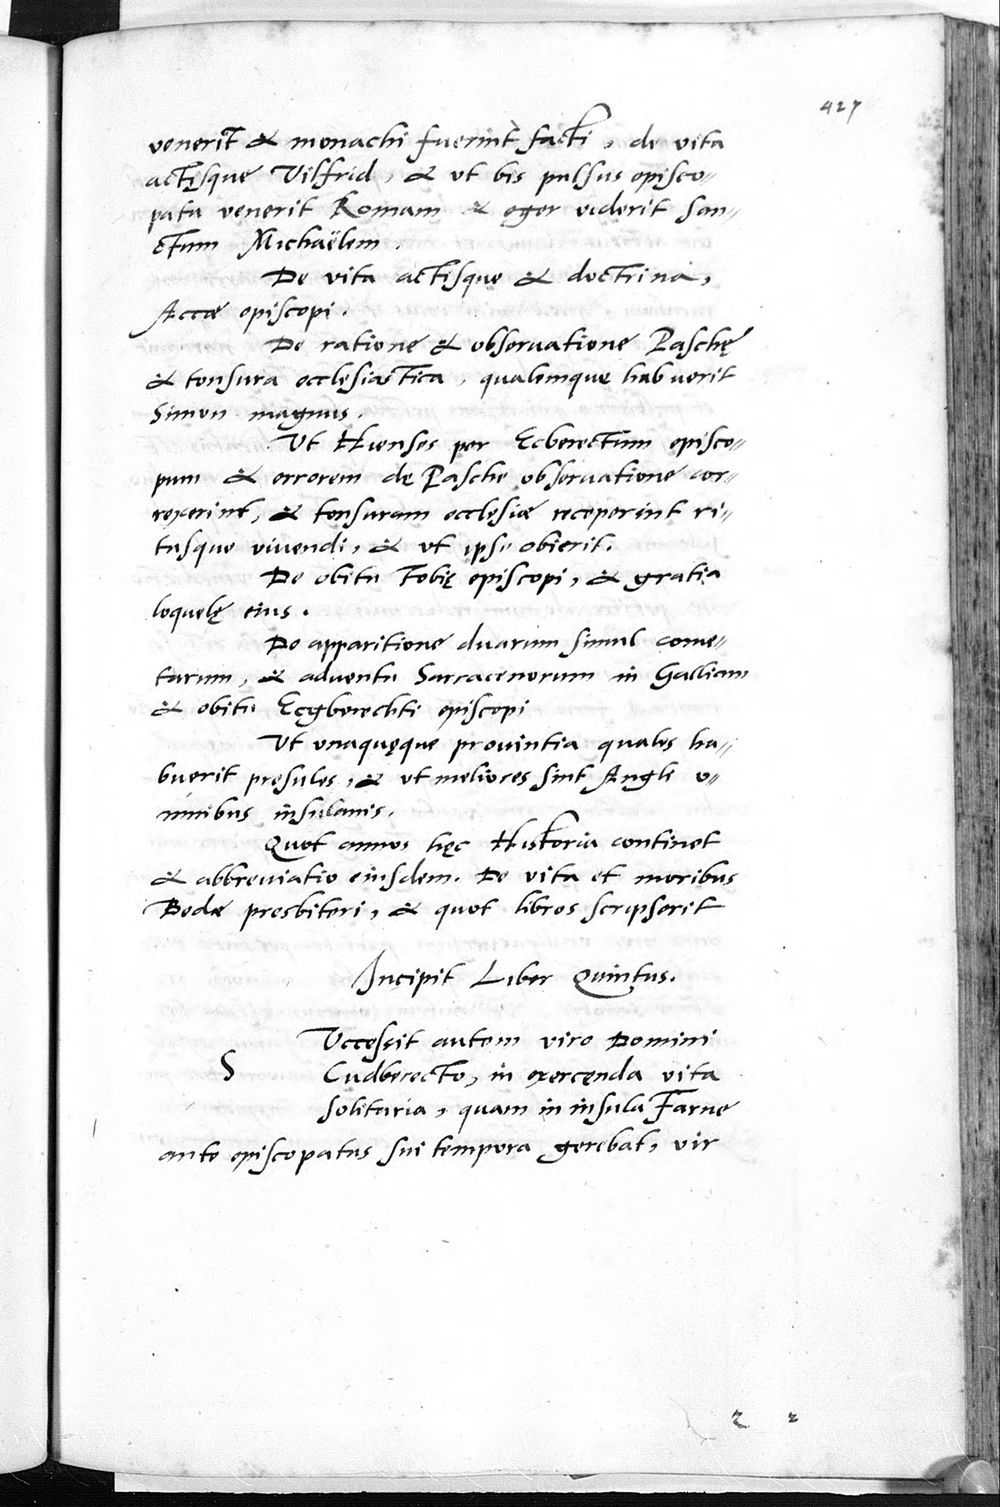 427
venerit & monachi fuerint facti, de vita
actisque Vilfrid, & vt bis pulsus episco„
patu venerit Romam & eger viderit san„
ctum Michaëlem.
De vita actisque & doctrina,
Accæ episcopi.
De ratione & obseruatione Paschę
& tonsura ecclesiastica, qualemque habuerit
Simon magnus.
Vt Hienses per Ecberectum episco„
pum & errorem de Pasche obseruatione cor„
rexerint, & tonsuram ecclesiæ receperint ri„
tusque viuendi, & vt ipse obierit.
De obitu Tobię episcopi, & gratia
loquelę eius.
De apparitione duarum simul come„
tarum, & aduentu Sarracenorum in Galliam
& obitu Ecgberechti episcopi
Vt vnaquęque prouintia quales ha„
buerit presules, & vt meliores sint Angli o„
mnibus insulanis.
Quot annos hęc Historia continet
& abbreuiatio eiusdem. De vita et moribus
Bedæ presbiteri, & quot libros scripserit
Incipit Liber Quintus.
S Vccessit autem viro Domini
Cudberecto, in exercenda vita
solitaria, quam in insula Farne
ante episcopatus sui tempora gerebat, vir